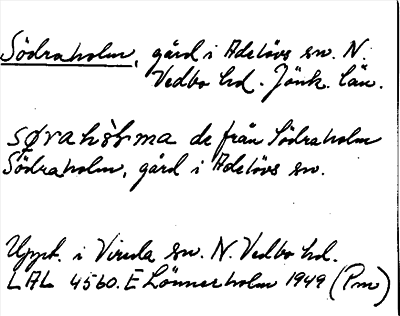 Södraholm, gård i Adelövs sn. N.
Vedbo hd. Jönk. län.
sørahòlma de från Södraholm
Södraholm, gård i Adelövs sn.
Uppt. i Vireda sn. N. Vedbo hd.
LAL 4560. E Lönnerholm 1949 (Pm)